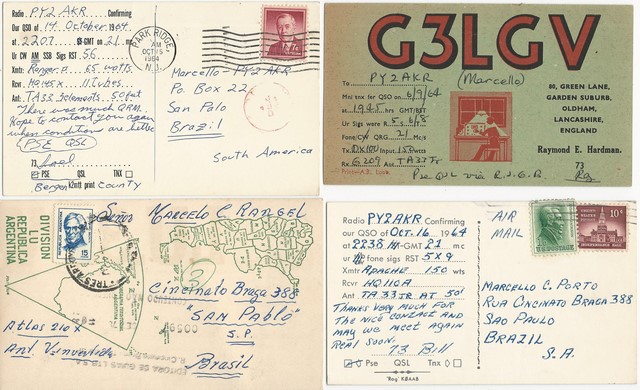 Radio PY2AKR Confirming
Our QSO of 14 October 1964
at 2207 GMT on 21 mc
Ur CW AM SSB Sigs RST 56
Xmtr: Ranger 2 65 watts
Rcvr: HQ145X 11 tubes
Ant: TA33 3elements 50 feet
There was much QRM.
Hope to contact you again
when condition are better
PSE QSL
73,
PSE QSL TNX
Bergen County
PARK RIDGE
AM
OCT 15
1964
N.J.
Marcello - PY2AKR
Po. Box 22
San Palo
Brazil
South America
G3LGV
To PY2AKR (Marcello)
Mni tnx for QSO on 6/9/64
at 1945 hrs GMT/BST
Ur Sigs were R 5 S 6/8
Fone/CW QRG 21 Mc/s
Tx DX100 Input 150 watts
Rx G209 Ant TA33Jr
Pse QSL via R.S.G.B
80, GREEN LANE,
GARDEN SUBURB,
OLDHAM,
LANCASHIRE,
ENGLAND
Raymond E. Hardman.
73
DIVISION
LU
REPUBLICA
ARGENTINA
15
Señor MARCELO C. RANGEL
Cincinato Braga 388
"SAN PABLO"
S.P.
Brasil
Atlas 210X
Ant.
Radio PY2AKR Confirming
our QSO of OCT. 16 1964
at 2238 GMT 21 mc
ur fone sigs RST 5X9
Xmtr APACHE 150 wts
Rcvr HQ110A
Ant TA 33 JR AT 50'
THANKS VERY MUCH FOR
THE NICE CONTACT AND
MAY WE MEET AGAIN
REAL SOON.
73 Bill
Pse QSL Tnx
"Rog" K8AAB
AIR
MAIL
U.S. POSTAGE
10¢
INDEPENDENCE HALL
MARCELLO C. PORTO
RUA CINCINATO BRAGA 388
SAO PAULO
BRAZIL
S. A.